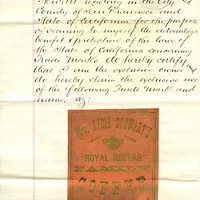 residing in the City &
County of San Francisco and
State of California for the purpose
of securing to myself the advantage
benefit & protection of the laws of
the State of California concerning
Trade Marks do hereby certify
that I am the exclusive owner and
do hereby claim the exclusive use
of the following Trade Mark and
name, viz:
MRS. LYDIA STEWART'S
"ROYAL NECTAR"
FAMILY
COFFEE